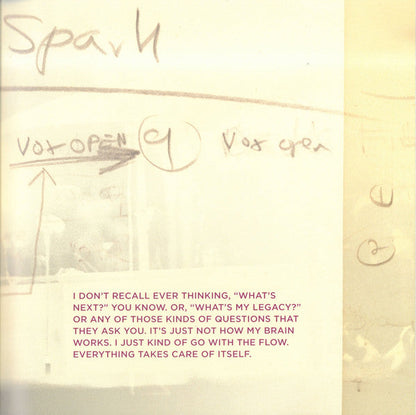 Spark
VOX OPEN
Vox open
I DON'T RECALL EVER THINKING, "WHAT'S
NEXT?" YOU KNOW. OR, "WHAT'S MY LEGACY?"
OR ANY OF THOSE KINDS OF QUESTIONS THAT
THEY ASK YOU. IT'S JUST NOT HOW MY BRAIN
WORKS. I JUST KIND OF GO WITH THE FLOW.
EVERYTHING TAKES CARE OF ITSELF.